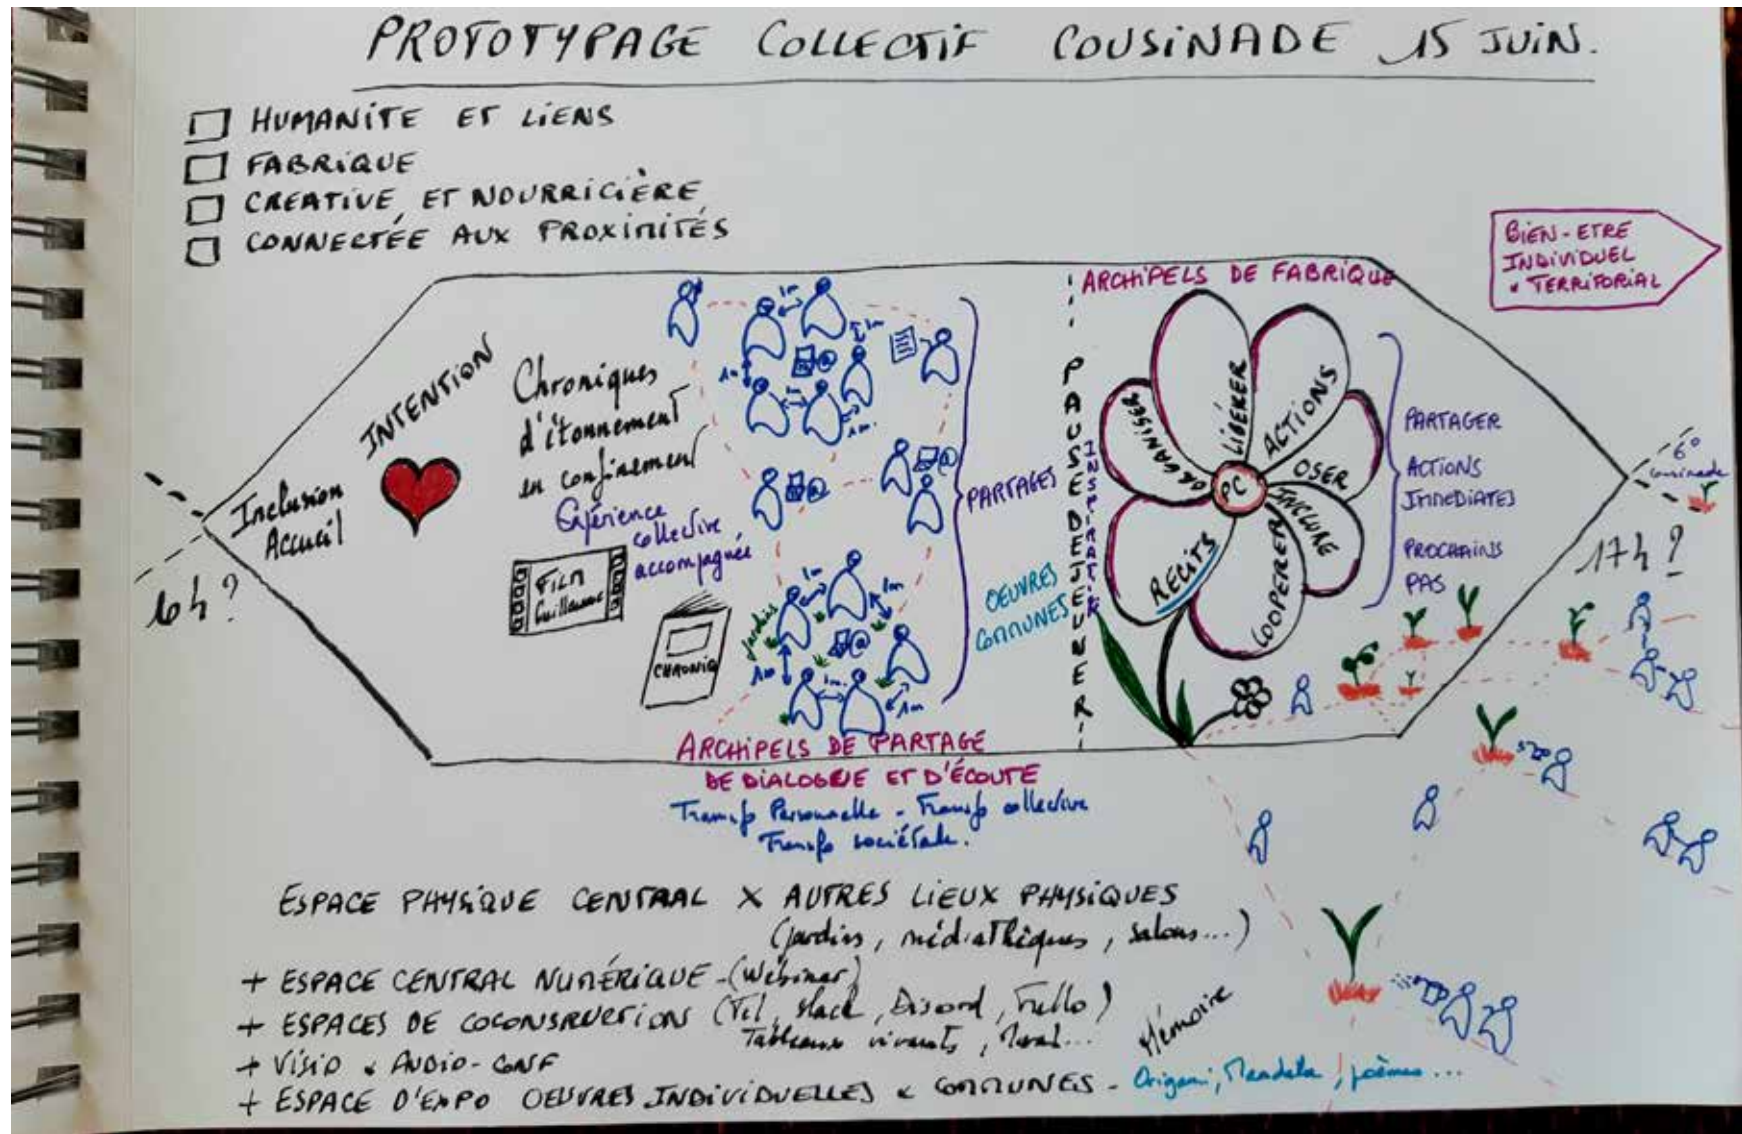 PROTOTYPAGE COLLECTIF COUSINADE 15 JUIN.
HUMANITE ET LIENS
FABRIQUE
CREATIVE ET NOURRICIÈRE
CONNECTÉE AUX PROXIMITÉS
BIEN-ETRE
INDIVIDUEL
& TERRITORIAL
Inclusion
Accueil
INTENTION
Chroniques
d'étonnement
en confinement
Expérience
collective
accompagnée
FILM
Guillaume
CHRONIQ
jardins
1m
1m
1m
1m
1m
1m
1m
1m
1m
1m
1m
PARTAGES
OEUVRES
COMMUNES
ARCHIPELS DE PARTAGE
DE DIALOGUE ET D'ÉCOUTE
Transfo Personnelle - Transfo collective
Transfo sociétale.
PAUSE DEJEUNER
INSPIRATION
ARCHIPELS DE FABRIQUE
LIBÉRER
ACTIONS
OSER
INCLURE
COOPERER
RECITS
ORGANISER
PC
PARTAGER
ACTIONS
IMMEDIATES
PROCHAINS
PAS
6°
cousinade
17h?
ESPACE PHYSIQUE CENTRAL X AUTRES LIEUX PHYSIQUES
(jardins, médiathèques, salons...)
+ ESPACE CENTRAL NUMÉRIQUE - (Webinar)
+ ESPACES DE COCONSRUCTION (Tel, Slack, Discord, Trello)
Tableaux vivants, Mural...
+ VISIO & AUDIO-CONF
+ ESPACE D'EXPO OEUVRES INDIVIDUELLES & COMMUNES - Origami, Mandala, poèmes...
Mémoire